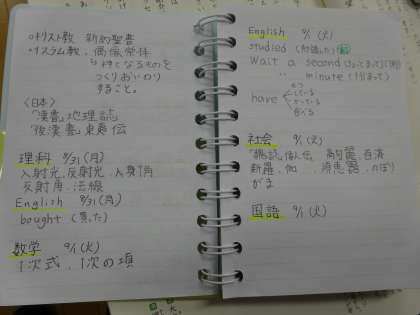 ○キリスト教 新約聖書
○イスラム教、偶像崇拝
↳神となるものを
つくりおいのり
すること。
〈日本〉
「漢書」地理誌
「後漢書」東夷伝
理科 8/31(月)
入射光、反射光、入射角
反射角、法線
English 8/31(月)
bought (買った)
数学 9/1(火)
1次式、1次の項
English 9/1(火)
studied (勉強した)
Wait a second (ちょっとまって)
〃 minute (1分まって)
もつ
have している
かっている
食べる
社会 9/1(火)
「魏志」倭人伝 高句麗、百済
新羅、伽 、須恵器、のぼり
がま
国語 9/1(火)